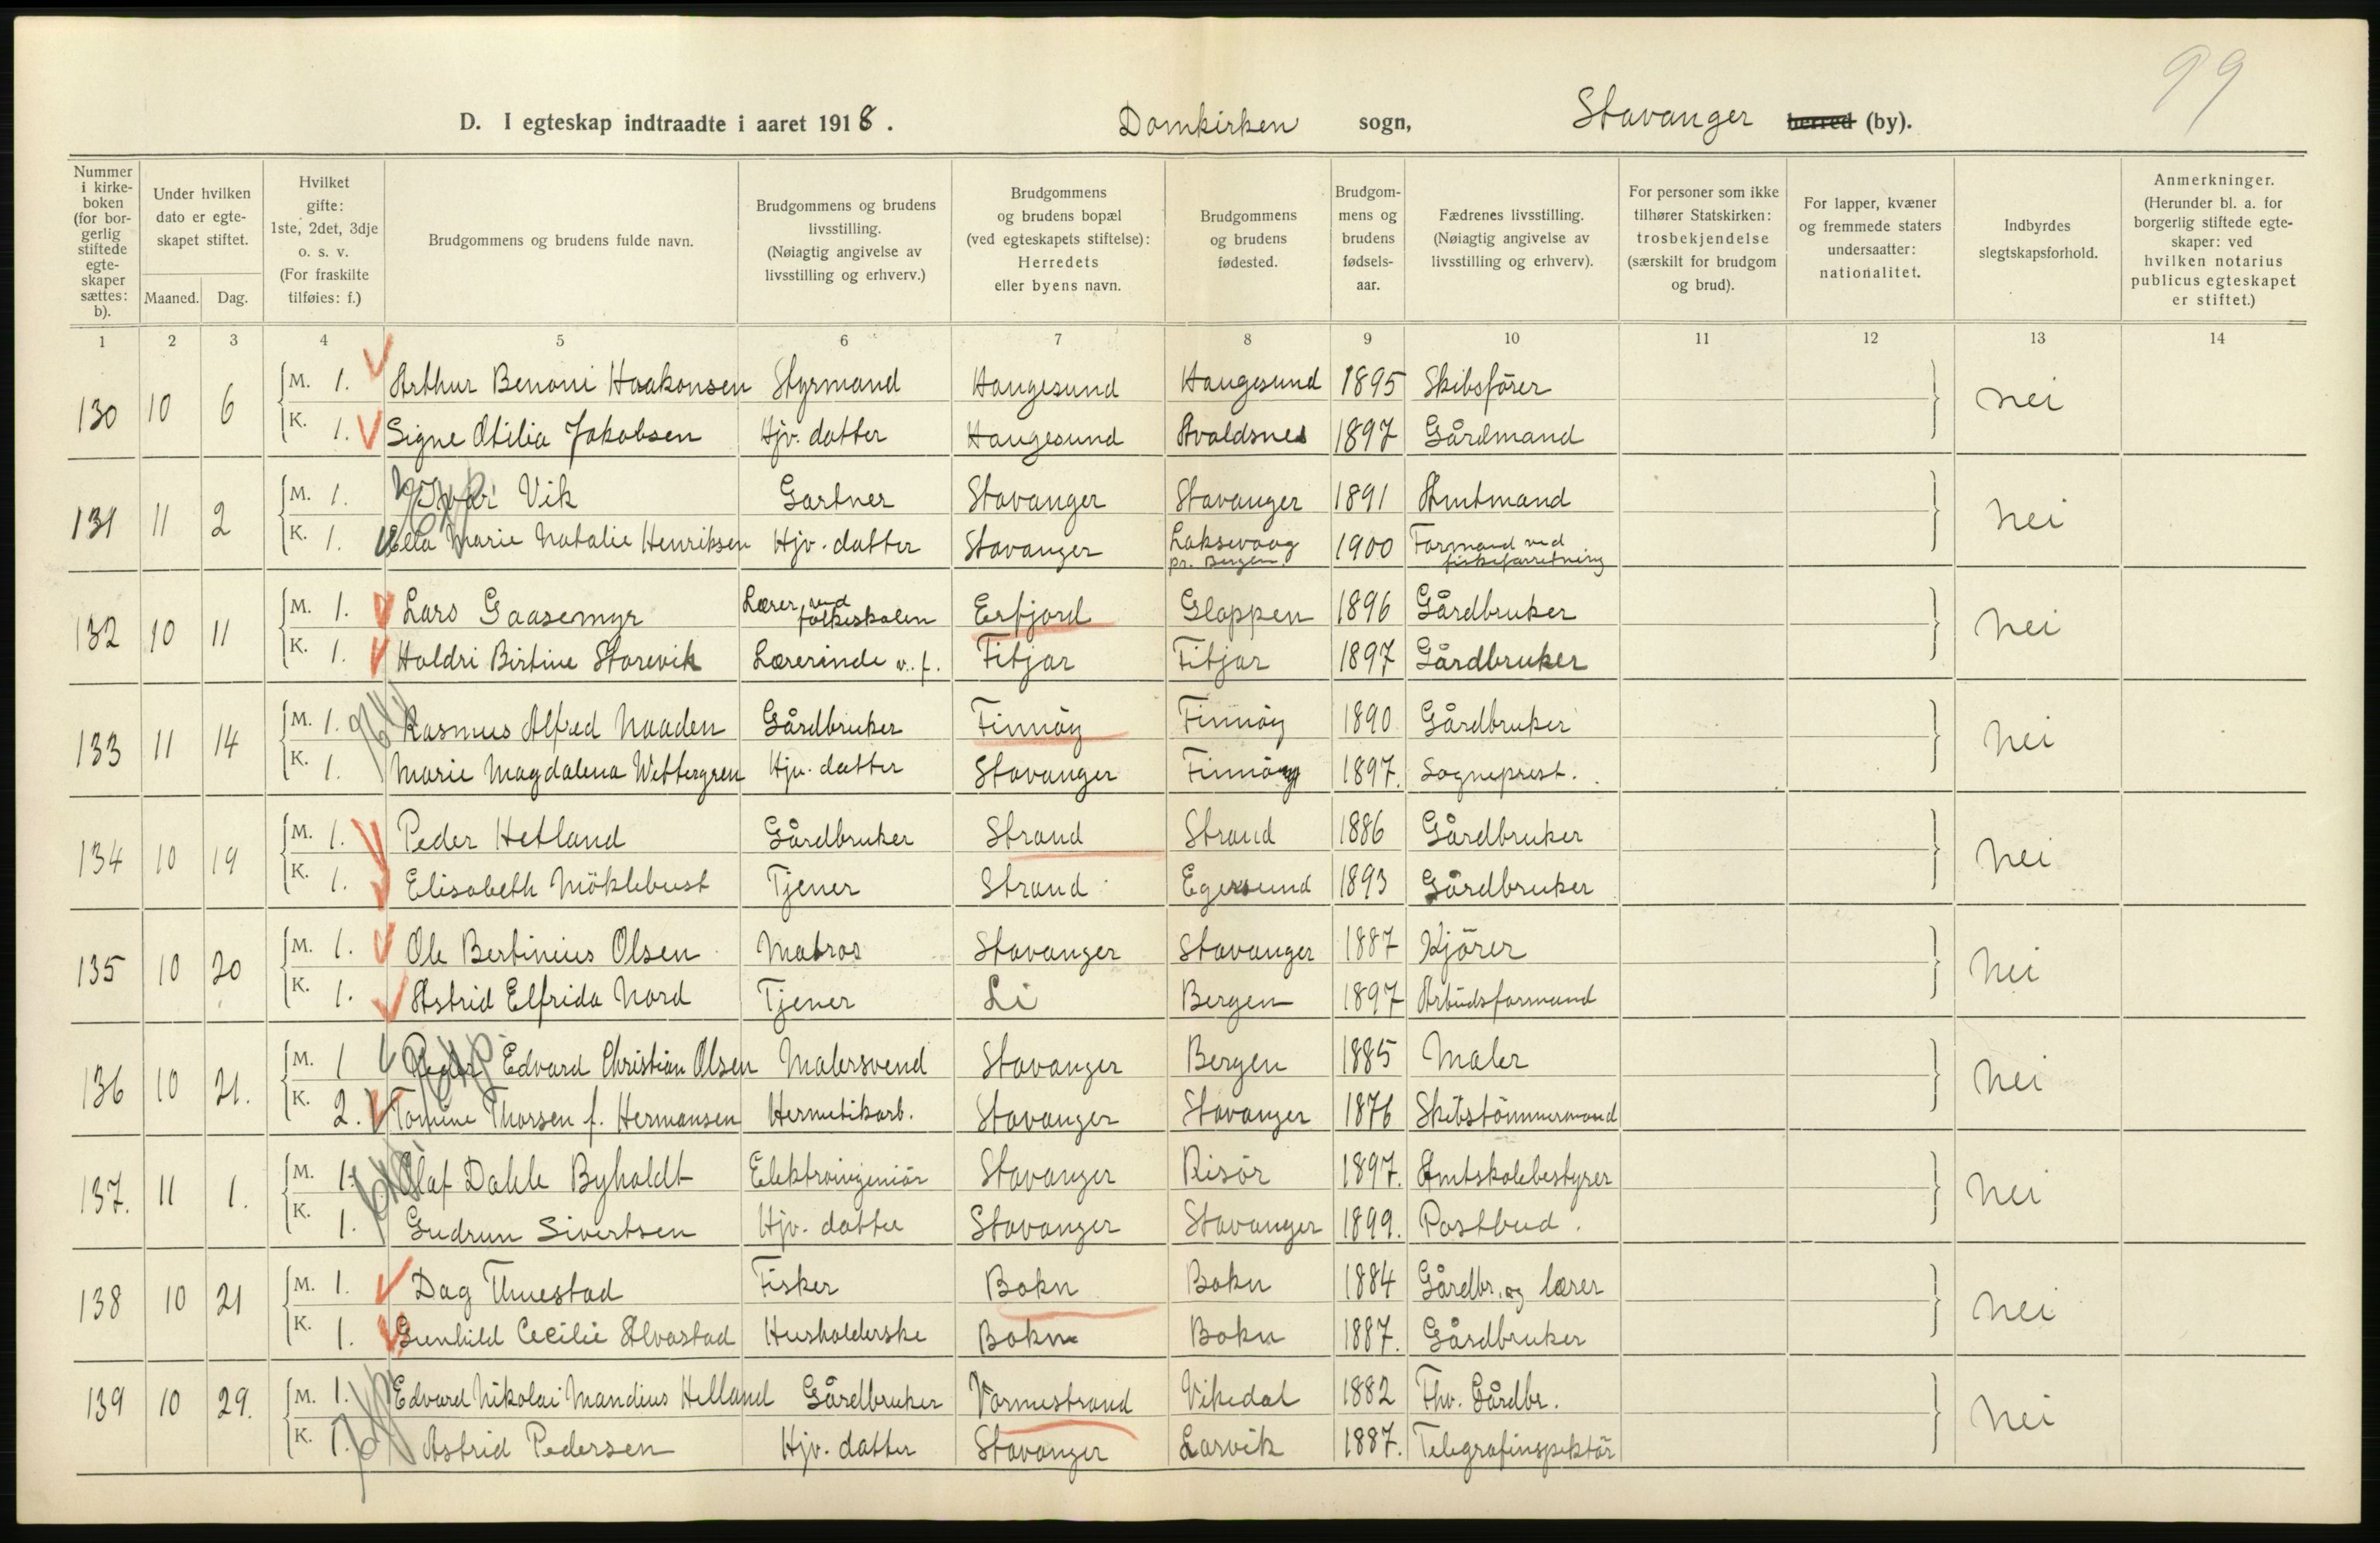 99
D. I egteskap indtraadte i aaret 1918. Domkirken sogn, Stavanger herred (by).
Nummer i kirke-boken (for bor-gerlig stiftede egte-skaper sættes: b).
Under hvilken dato er egte-skapet stiftet.
Maaned. Dag.
Hvilket gifte: 1ste, 2det, 3dje o. s. v. (For fraskilte tilføies: f.)
Brudgommens og brudens fulde navn.
Brudgommens og brudens livsstilling. (Nøiagtig angivelse av livsstilling og erhverv.)
Brudgommens og brudens bopæl (ved egteskapets stiftelse): Herredets eller byens navn.
Brudgommens og brudens fødested.
Brudgom-mens og brudens fødsels-aar.
Fædrenes livsstilling. (Nøiagtig angivelse av livsstilling og erhverv).
For personer som ikke tilhører Statskirken: trosbekjendelse (særskilt for brudgom og brud).
For lapper, kvæner og fremmede staters undersaatter: nationalitet.
Indbyrdes slegtskapsforhold.
Anmerkninger. (Herunder bl. a. for borgerlig stiftede egte-skaper: ved hvilken notarius publicus egteskapet er stiftet.)
1 2 3 4 5 6 7 8 9 10 11 12 13 14
130 10 6 M. 1. Arthur Benoni Haakonsen Styrmand Haugesund Haugesund 1895 Skibsfører nei
K. 1. Signe Otilia Jakobsen Hjv. datter Haugesund Avaldsnes 1897 Gårdmand
131 11 2 M. 1. Vik Gartner Stavanger Stavanger 1891 Amtmand nei
K. 1. Ella Marie Natalie Henriksen Hjv. datter Stavanger Laksevaag pr. Bergen 1900 Formand ved fiskeforretning
132 10 11 M. 1. Lars Gaasemyr Lærer ved folkeskolen Erfjord Gloppen 1896 Gårdbruker nei
K. 1. Haldri Birtine Storevik Lærerinde v. f. Fitjar Fitjar 1897 Gårdbruker
133 11 14 M. 1. Rasmus Alfred Naaden Gårdbruker Finnöy Finnöy 1890 Gårdbruker nei
K. 1. Marie Magdalena Wettergren Hjv. datter Stavanger Finnöy 1897. Sogneprest.
134 10 19 M. 1. Peder Hetland Gårdbruker Strand Strand 1886 Gårdbruker nei
K. 1. Elisabeth Möklebust Tjener Strand Egersund 1893 Gårdbruker
135 10 20 M. 1. Ole Bertinius Olsen Matros Stavanger Stavanger 1887 Kjörer nei
K. 1. Astrid Elfrida Nord Tjener Li Bergen 1897 Arbeidsformand
136 10 21. M. 1 Edvard Christian Olsen Malersvend Stavanger Bergen 1885 Maler nei
K. 2. Tomine Thorsen f. Hermansen Hermetikarb. Stavanger Stavanger 1876 Skibstömmermand
137. 11 1. M. 1. Olaf Dahle Byholdt Elektroingeniör Stavanger Risör 1897. Amtskolebestyrer nei
K. 1. Gudrun Sivertsen Hjv. datter Stavanger Stavanger 1899. Postbud.
138 10 21 M. 1. Dag Thuestad Fisker Bokn Bokn 1884 Gårdbr. og lærer nei
K. 1. Gunhild Cecilie Alvastad Husholderske Bokn Bokn 1887. Gårdbruker
139 10 29. M. 1. Edvard Nikolai Mandius Helland Gårdbruker Vormestrand Vikedal 1882 Fhv. Gårdbr. nei
K. 1. Astrid Pedersen Hjv. datter Stavanger Larvik 1887. Telegrafinspektör